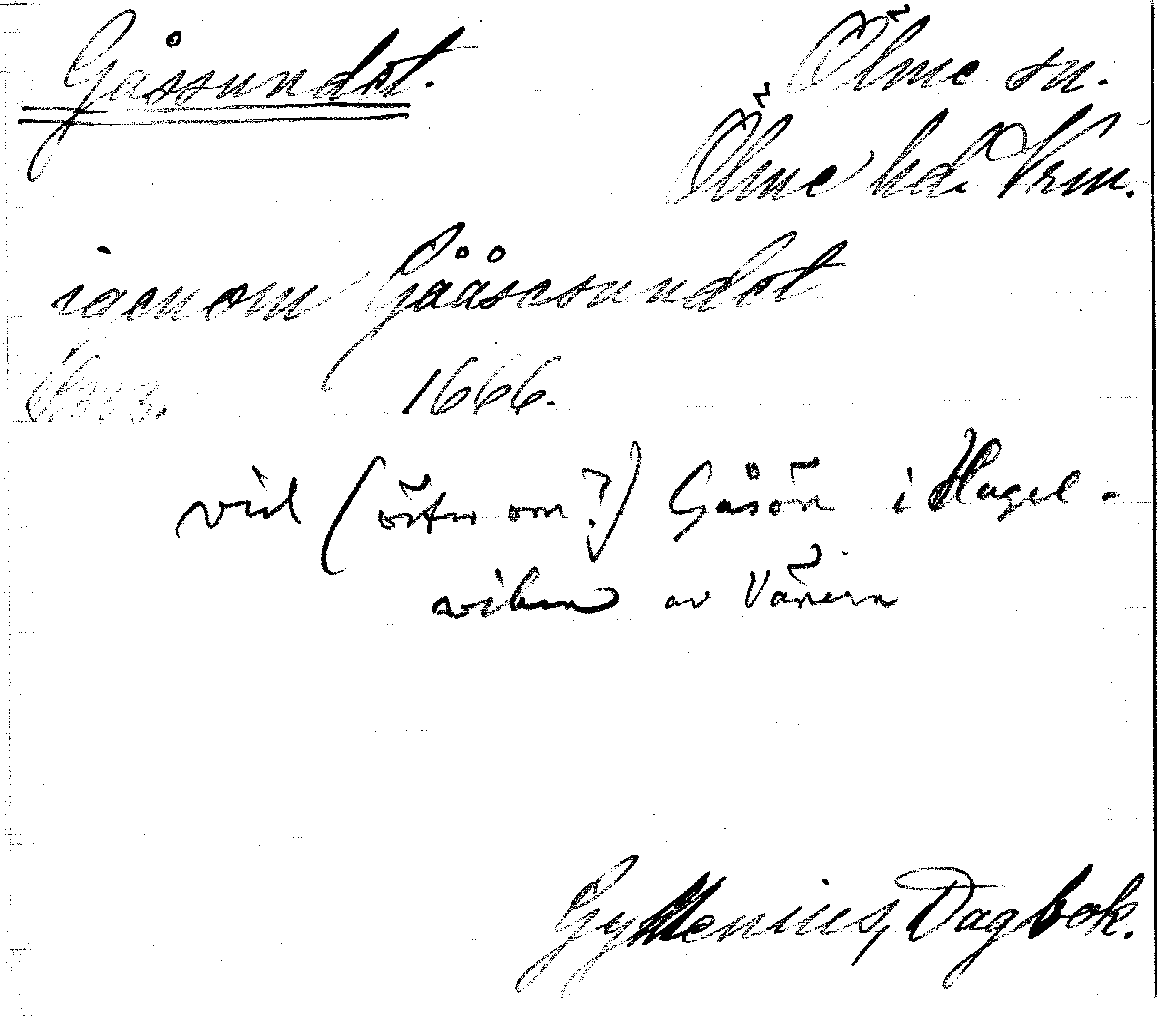 Gåssundet.
Ölme sn.
Ölme hd. Vrm.
igenom Gååsesundet
1666.
vid (öster om?) Gåsön i Hagel-
viken av Vänern
Gyllenius, Dagbok.